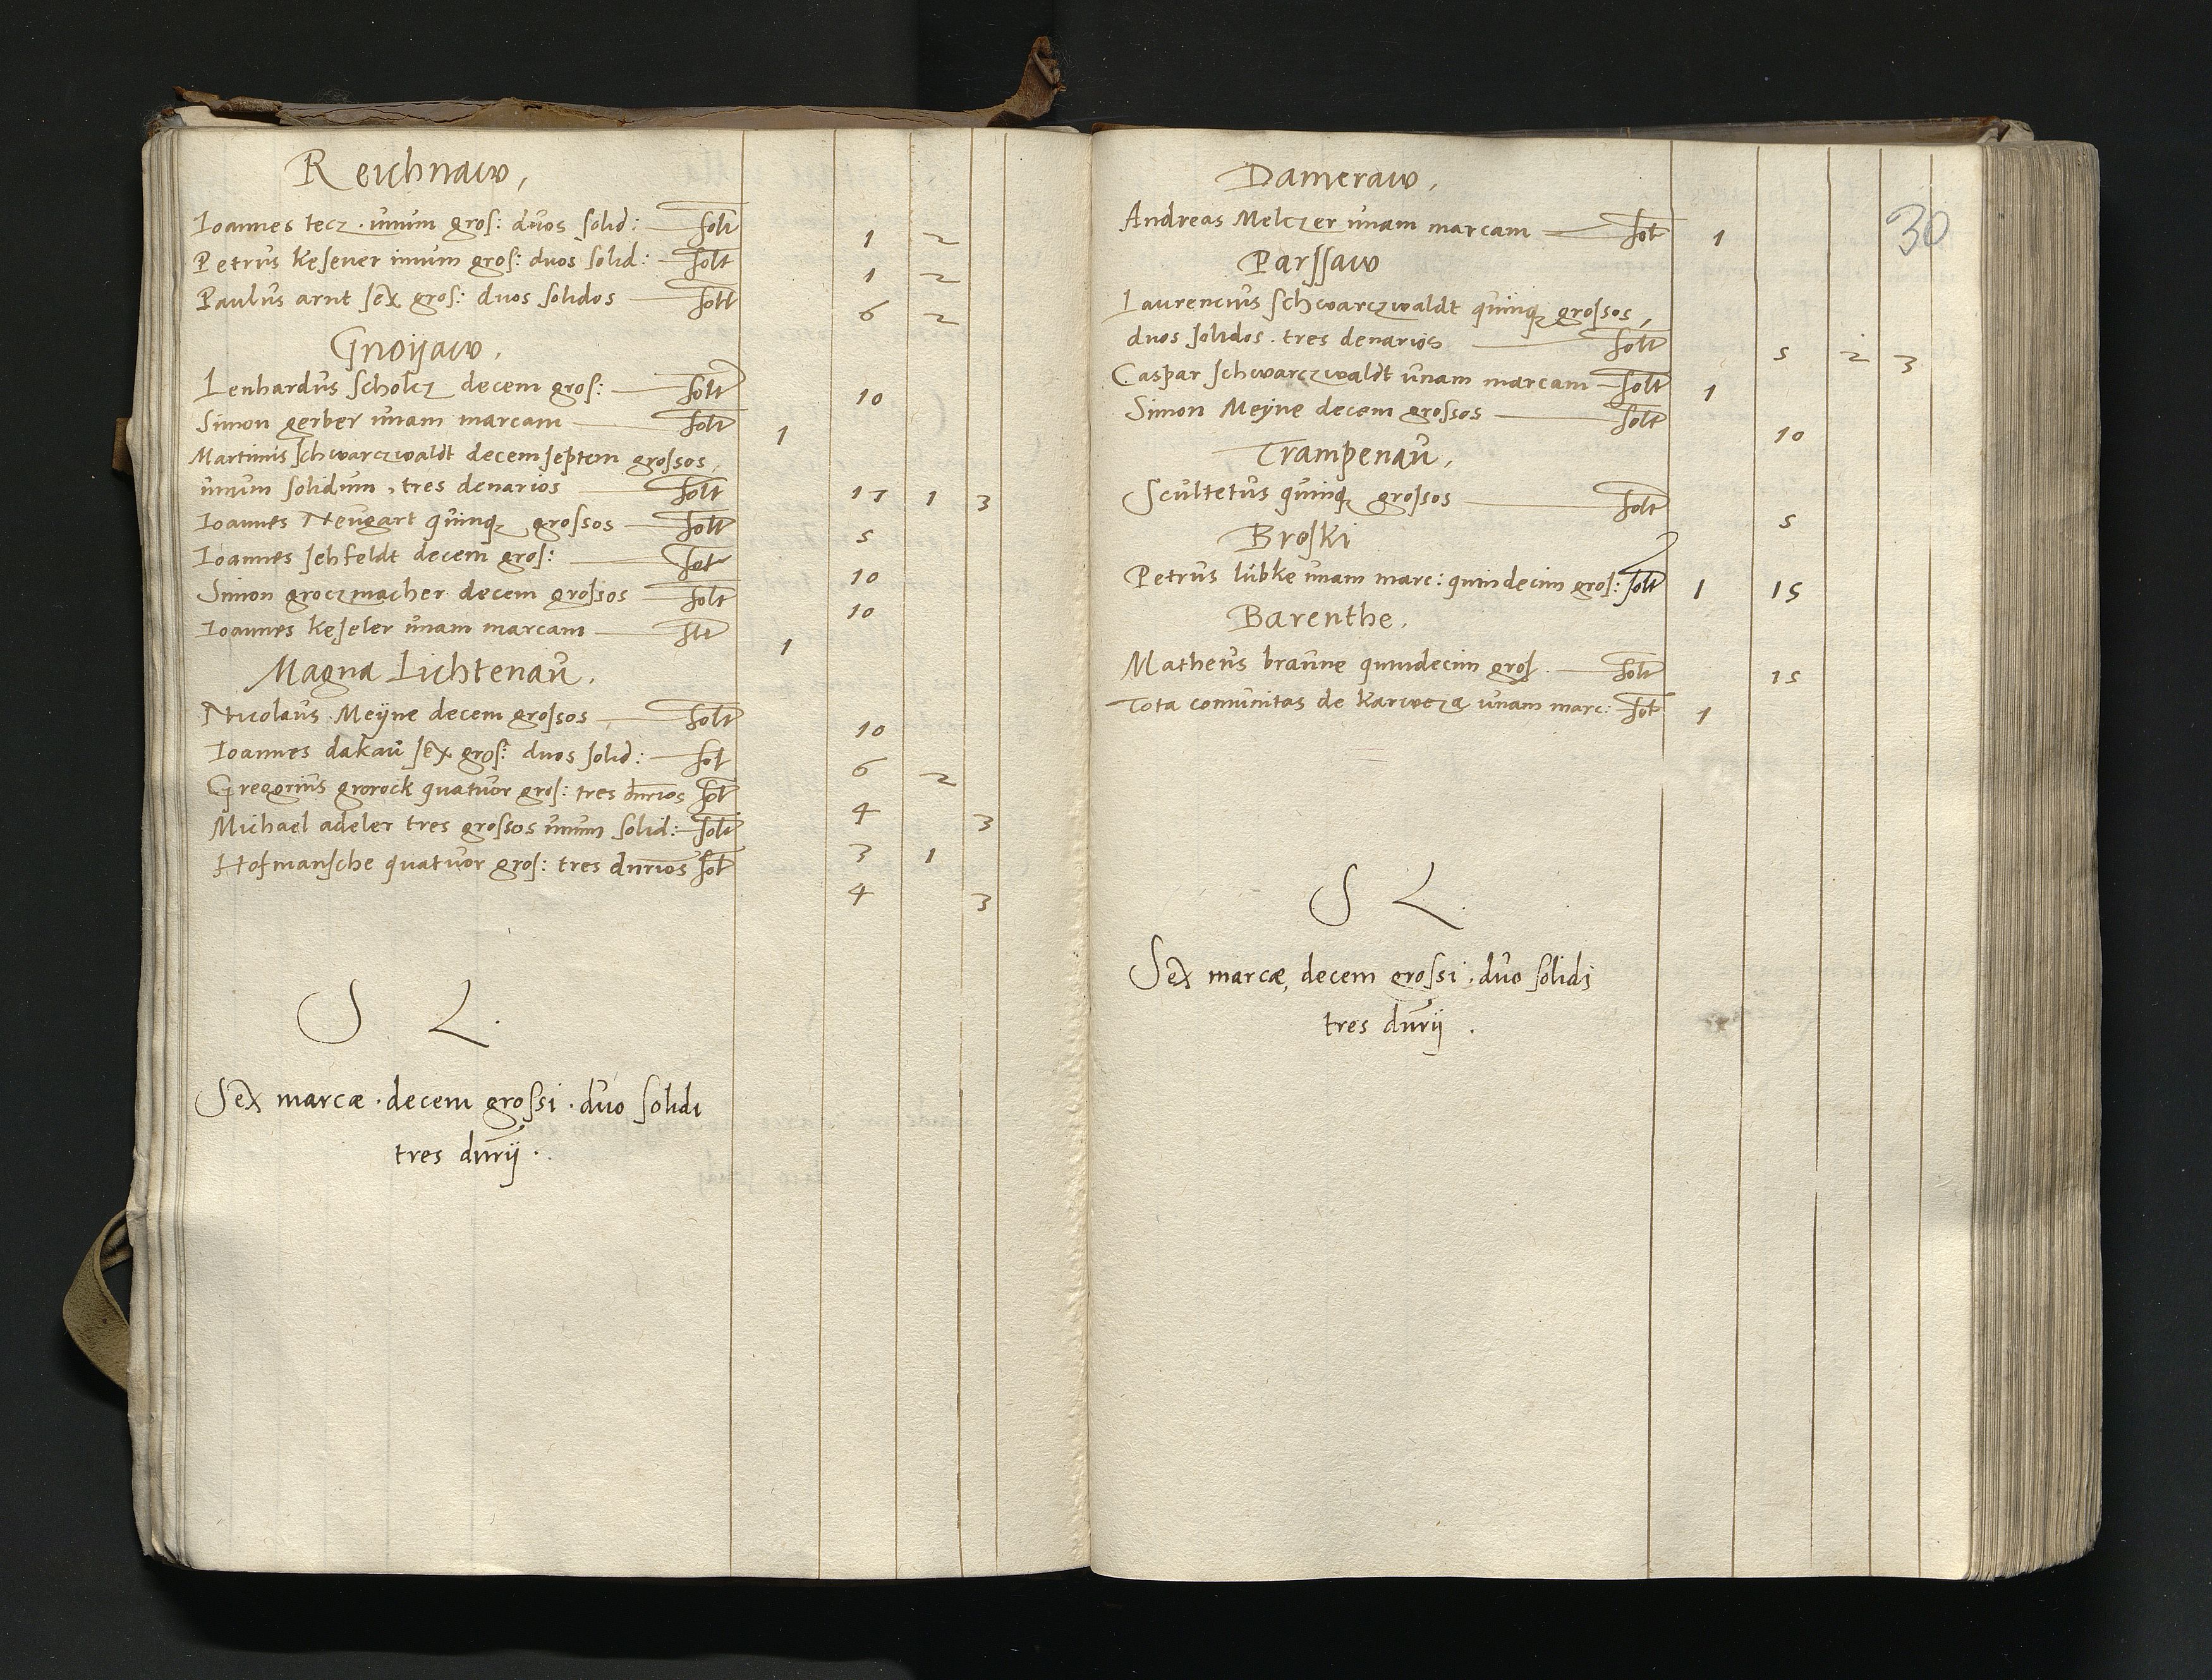 Reichnaw,
Ioannes tecz. unum gros: duos solid: solt 1 2
Petrus kesener unum gros: duos solid: solt 1 2
Paulus arnt sex gros: duos solidos solt 6 2
Gnoijaw,
Lenhardus scholcz decem gros: solt 10
Simon gerber unam marcam solt 1
Martinus schwarczwaldt decem septem grossos,
unum solidum, tres denarios solt 17 1 3
Ioannes Neugart quinq grossos solt 5
Ioannes sehfeldt decem gros: sot 10
Simon groczmacher decem grossos solt 10
Ioannes keseler unam marcam slt 1
Magna Lichtenau.
Nicolaus Meijne decem grossos solt 10
Ioannes dakau sex gros: duos solid: sot 6 2
Gregorius grorock quatuor gros: tres dnrios sot 4 3
Michael adeler tres grossos unum solid: solt 3 1
Hofmansche quatuor gros: tres dnrios sot 4 3
S L.
Sex marcæ. decem grossi. duo solidi
tres dnrij.
30
Dameraw,
Andreas Melczer unam marcam sot 1
Parssaw
Laurencius schwarczwaldt quinq grossos,
duos solidos. tres denarios solt 5 2 3
Caspar schwarczwaldt unam marcam solt 1
Simon Meijne decem grossos solt 10
Trampenau,
Scultetus quinq grossos solt 5
Broski
Petrus lubke unam marc: quindecim gros: solt 1 15
Barenthe.
Matheus braune quindecim gros solt 15
Tota comunitas de unam marc: sot 1
S L.
Sex marcæ, decem grossi. duo solidi
tres dnrij.